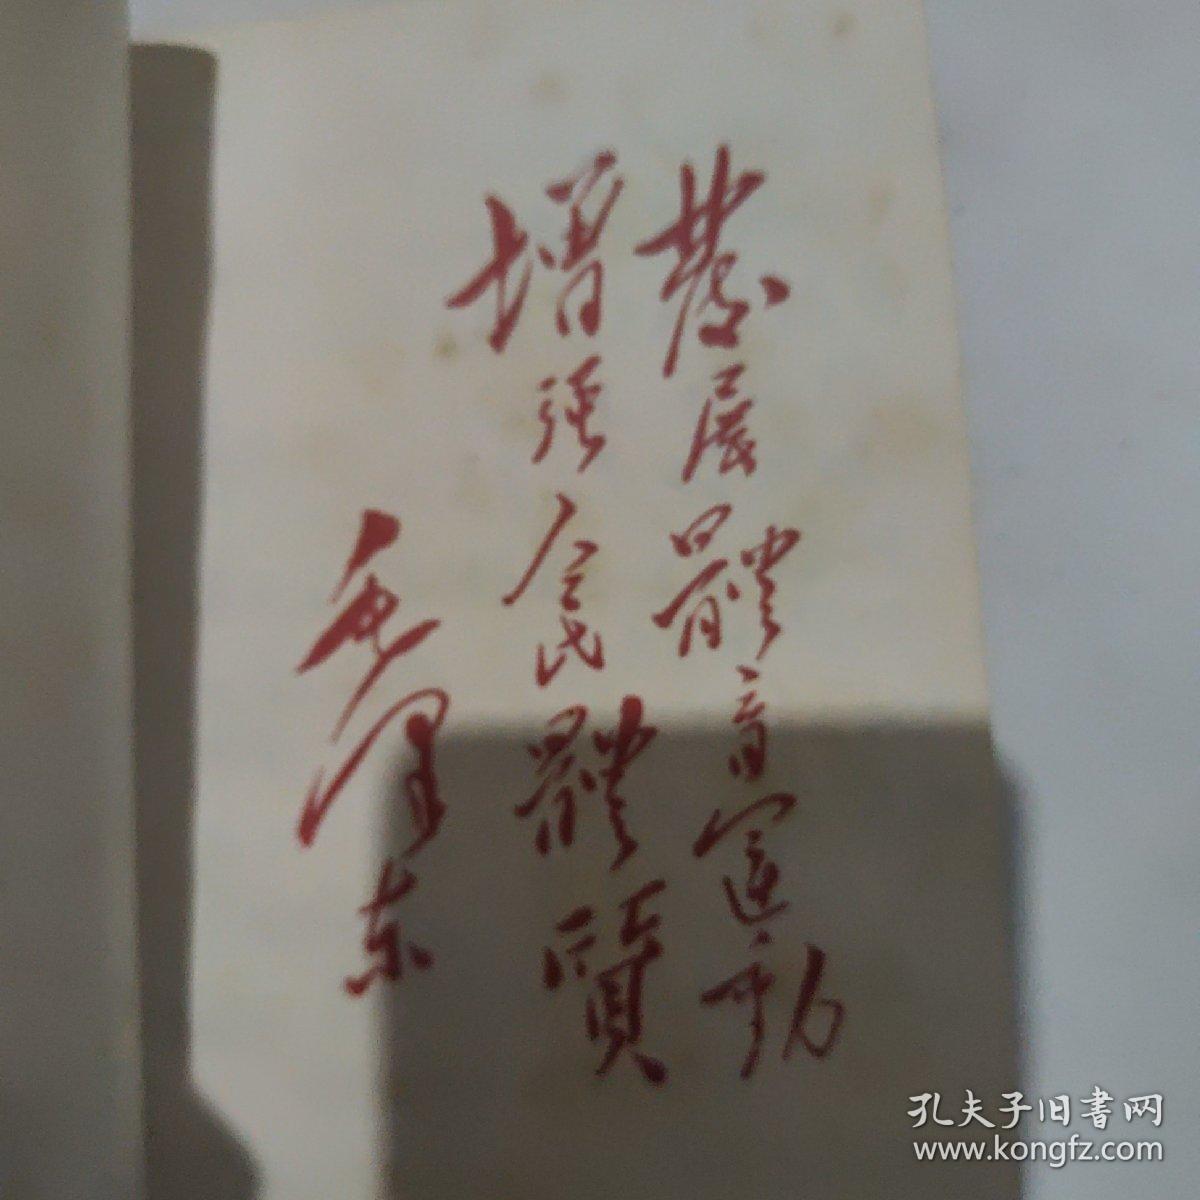 發展體育運動
增强人民體質
毛泽东
孔夫子旧書网
www.kongfz.com